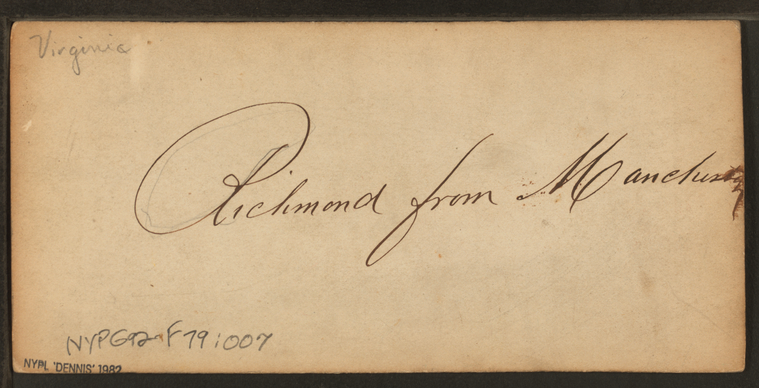 Virginia
Richmond from Manchester
NYPG92-F79:007
NYPL 'DENNIS' 1982